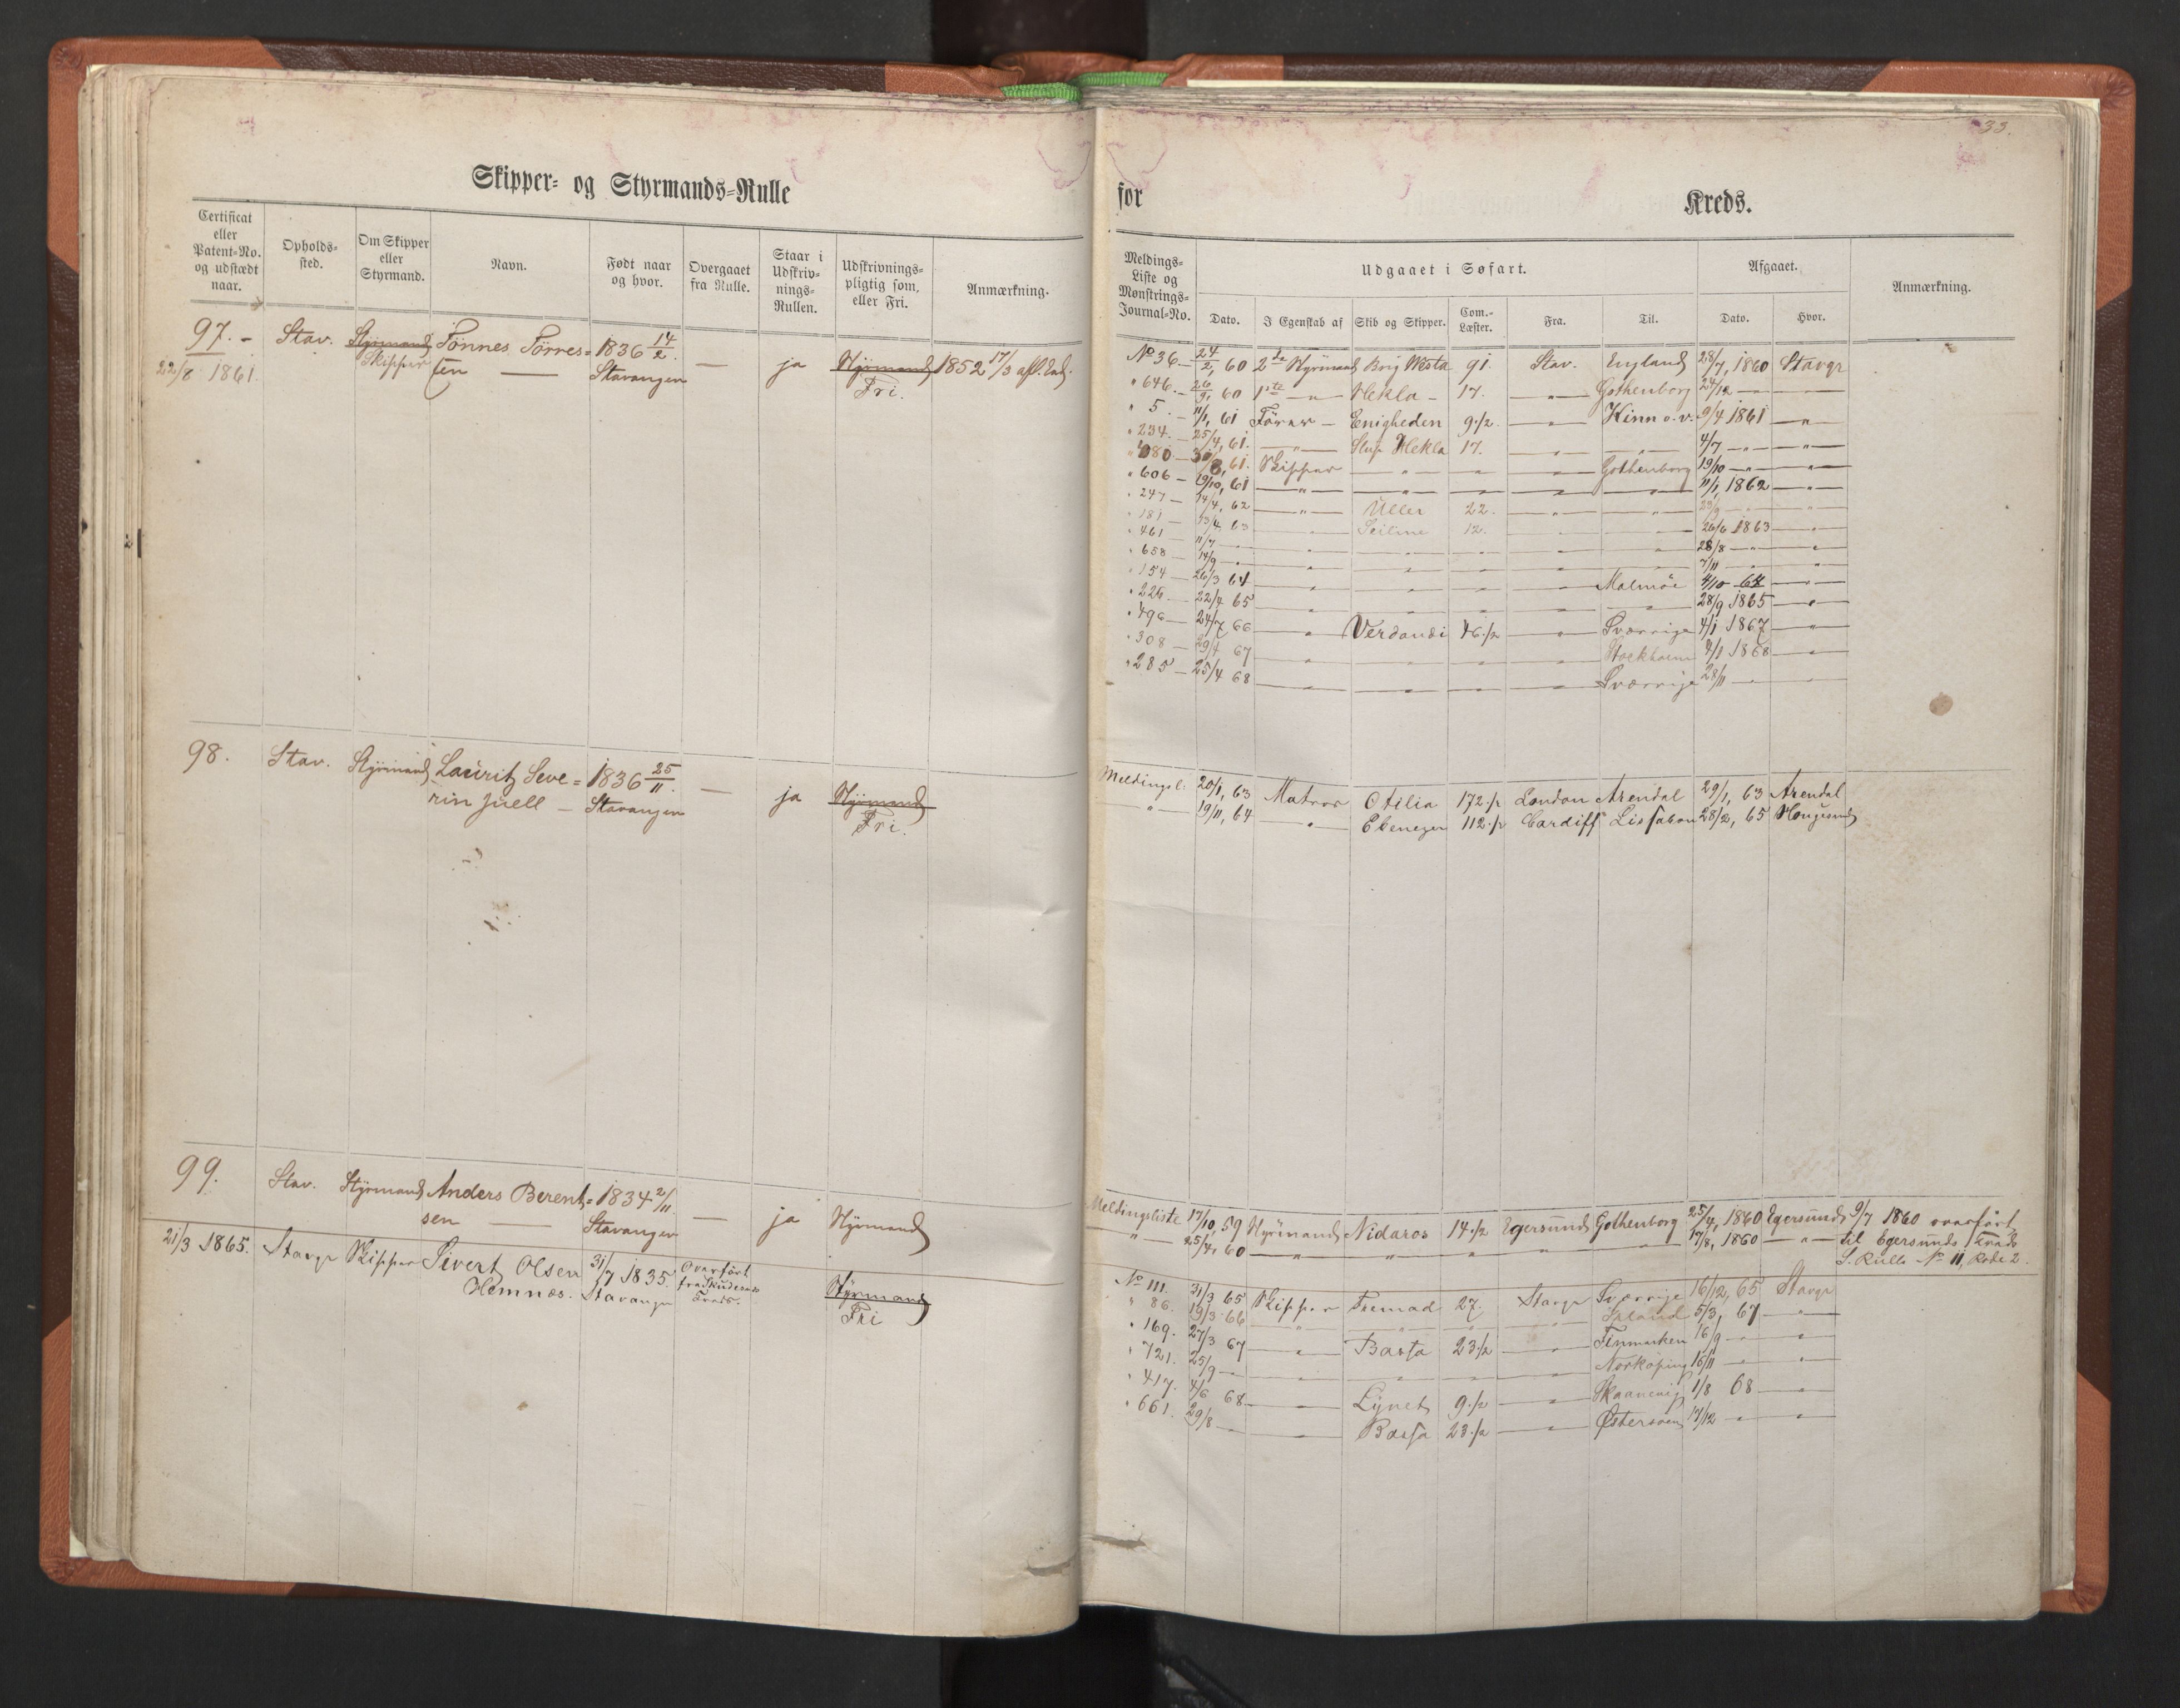 33.
Skipper- og Styrmands-Rulle
for Kreds.
Certificat eller Patent-No. og udstædt naar. Opholds-sted. Om Skipper eller Styrmand. Navn. Født naar og hvor. Overgaaet fra Rulle. Staar i Udskriv-nings-Rullen. Udskrivnings-pligtig som, eller Fri. Anmærkning.
Meldings-Liste og Mønstrings-Journal-No. Udgaaet i Søfart. Afgaaet. Anmærkning.
Dato. I Egenskab af Skib og Skipper. Com.-Læster. Fra. Til. Dato. Hvor.
97. - Stav. Styrmand Tönnes Törres= 1836 14/2. — ja Styrmand 1852 17/3
22/8 1861. Skipper sen — Stavanger Fri.
No 36 — 24/2, 60 2de Styrmand Brig Westa 91 Stav. England 28/7, 1860 Stavgr
" 646. — 26/9, 60 1ste — " — Hekla — 17. — " — Gothenborg 24/12 — " —
" 5. — 11/1, 61 Förer — Enigheden 9 1/2. — " — Kinn o.v. 9/4 1861 — " —
" 234. — 25/4, 61. — " — Slup Hekla 17. — " — — " — 4/7 — " — — " —
61. Skipper — " — — " — — " — Gothenborg 19/10 — " — — " —
" 606 — 19/10, 61 — " — — " — — " — — " — — " — 11/1, 1862 — " —
" 247 — 14/4, 62 — " — Uller 22. — " — — " — 23/9 — " — — " —
" 181 — 13/4 63 — " — 12. — " — — " — 26/6 1863 — " —
" 461 — 11/7 — " — — " — — " — — " — — " — — " — 28/8 — " — — " —
" 658 — 14/9 — " — — " — — " — — " — — " — — " — 7/11 — " — — " —
" 154 — 26/3 64 — " — — " — — " — — " — Malmöe 4/10 64 — " —
" 226 — 22/4 65 — " — — " — — " — — " — — " — 28/9 1865 — " —
" 496 — 24/7 66 — " — Verdandi 46 1/2 — " — Sverrige 4/1 1867 — " —
" 308 — 29/4 67 — " — — " — — " — — " — Stockholm 4/1 1868 — " —
" 285 — 25/4 68 — " — — " — — " — — " — Sverrige 28/11 — " — — " —
98. Stav. Styrmand Lauritz Seve= 1836 25/11. — ja Styrmand
rin Juell — Stavanger Fri.
Meldingsl. 20/1, 63 Matros Otilia 172 1/2 London Arendal 29/1, 63 Arendal
— " — 19/11, 64 — " — Ebenezer 112 1/2 Cardiff Lissabon 28/2, 65 Haugesund
99. Stav. Styrmand Anders Berent= 1834 2/11. — ja Styrmand
sen — Stavanger
Meldingsliste 17/10, 59 Styrmand Nidaros 14 1/2 Egersund Gothenborg 25/4, 1860 Egersund 9/7 1860 overfört
— " — 25/4, 60 — " — " " " " 17/8, 1860 — " — til Egersunds Kreds
S. Rulle No 11, Rode 2.
21/3 1865. Stavgr Skipper Sivert Olsen 31/7 1835. Overfört
Hemnæs. Stavanger fra Skudesnæs Kreds. Styrmand
Fri
No 111. 31/3 65 Skipper Fremad 27. Stavgr Sverrige 16/12, 65 Stavgr
" 86. 19/3 66 — " — — " — " — " — Island 5/3, 67 — " —
" 169. 27/3 67 — " — Bassa 23 1/2 — " — Finmarken 16/9 — " — — " —
" 721. 25/9 — " — — " — — " — — " — — " — Norköping 16/11 — " — — " —
" 417. 4/6 68 — " — Lynet 9 1/2 — " — Skaanevig 1/8 68 — " —
" 661. 29/8 — — " — Bassa 23 1/2 — " — Østersöen 17/12 — " — — " —